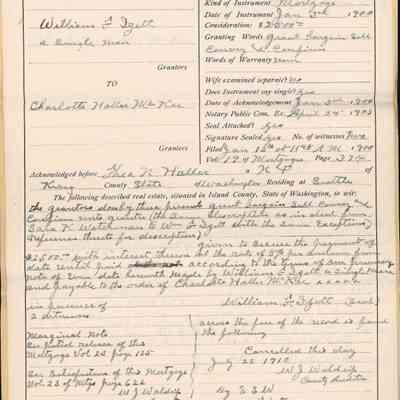 Kind of Instrument Mortgage
William F Izett
Date of Instrument Jan 3rd 1900
a Single man
Consideration: $2500.00
Granting Words Grant Bargain Sell
Convey & Confirm
Grantors
Words of Warranty
TO
Wife examined separate?
Does Instrument say single? Yes
Charlotte Haller Mc Kee
Date of Acknowledgement Jan 3rd 1900
Notary Public Com. Ex. April 24" 1903
Seal Attached? Yes
Signature Sealed Yes No. of witnesses Two
Filed Jan 12th at 11 A.M. 1900
Grantees
Vol 12 of Mortgages Page 374
Acknowledged before Theo N. Haller a N P of
King County State of Washington Residing at Seattle
The following described real estate, situated in Island County, State of Washington, to wit:
the grantors do by these presents grant bargain Sell Convey and
Confirm unto grantee (the same as in deed from
to Wm F Izett with the same Exceptions)
Reference thereto for description)
given to secure the payment of
$2500.00 with interest thereon at the rate of 8% per annum from
date until paid according to the terms of one promissory
note of Even date herewith made by William F Izett a single man
and payable to the order of Charlotte Haller Mc Kee
in presence of
William F Izett (Seal)
2 witnesses
across the face of the record is found
the following
Marginal Note
For Partial release of this
Mortgage Vol 22 page 125
Cancelled this day
July 22 1910
W J Waldrip
County Auditor
For Satisfaction of this Mortgage
Vol 23 of Mtgs page 622
W. J. Waldrip
By